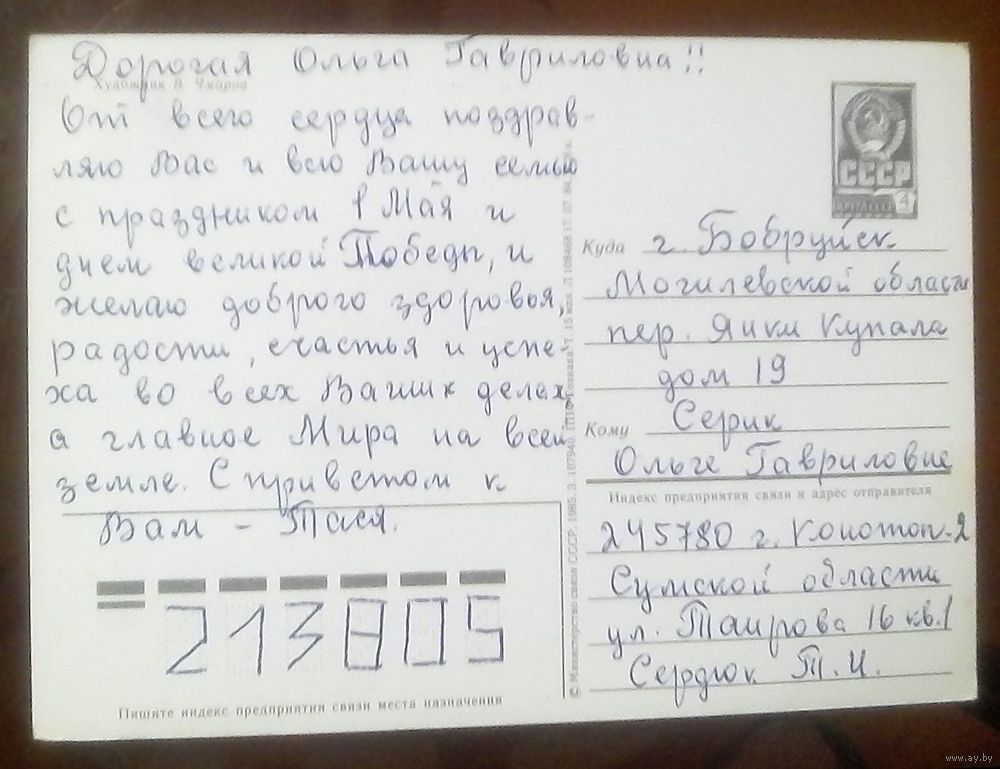 Дорогая Ольга Гавриловна!!
Художник В. Чмаров
От всего сердца поздрав-
ляю Вас и всю Вашу семью
с праздником 1 Мая и
днем великой Победы, и
желаю доброго здоровья,
радости, счастья и успе-
ха во всех Ваших делах,
а главное Мира на всей
земле. С приветом к
Вам - Тася.
213805
Пишите индекс предприятия связи места назначения
© Министерство связи СССР. 1985. З. 107940. ППФ Гознака. 15 млн.
СССР
4
Куда г. Бобруйск
Могилевской области
пер. Янки Купала
дом 19
Кому Серик
Ольге Гавриловне
Индекс предприятия связи и адрес отправителя
245780 г. Конотоп-2
Сумской области
ул. Таирова 16 кв. 1
Сердюк Т. И.
www.ay.by